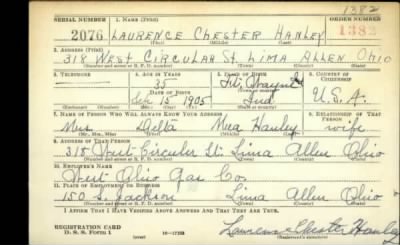 1382
SERIAL NUMBER 1. NAME (Print) ORDER NUMBER
2076 LAURENCE CHESTER HANLEY 1382
(First) (Middle) (Last)
2. ADDRESS (Print)
318 West Circular St. Lima Allen Ohio
(Number and street or R. F. D. number) (Town) (County) (State)
3. TELEPHONE 4. AGE IN YEARS 5. PLACE OF BIRTH 6. COUNTRY OF CITIZENSHIP
35 Ft. Wayne
DATE OF BIRTH
Feb. 15 1905 Ind U.S.A.
(Exchange) (Number) (Mo.) (Day) (Yr.) (State or country)
7. NAME OF PERSON WHO WILL ALWAYS KNOW YOUR ADDRESS 8. RELATIONSHIP OF THAT PERSON
Mrs. Della Hanley wife
(Mr., Mrs., Miss) (First) (Middle) (Last)
9. ADDRESS OF THAT PERSON
318 West Circular St. Lima Allen Ohio
(Number and street or R. F. D. number) (Town) (County) (State)
10. EMPLOYER'S NAME
West Ohio Gas Co.
11. PLACE OF EMPLOYMENT OR BUSINESS
150 S. Jackson Lima Allen Ohio
(Number and street or R. F. D. number) (Town) (County) (State)
I AFFIRM THAT I HAVE VERIFIED ABOVE ANSWERS AND THAT THEY ARE TRUE.
REGISTRATION CARD
D. S. S. Form 1 16—17105 Laurence Chester Hanley
(Registrant's signature)